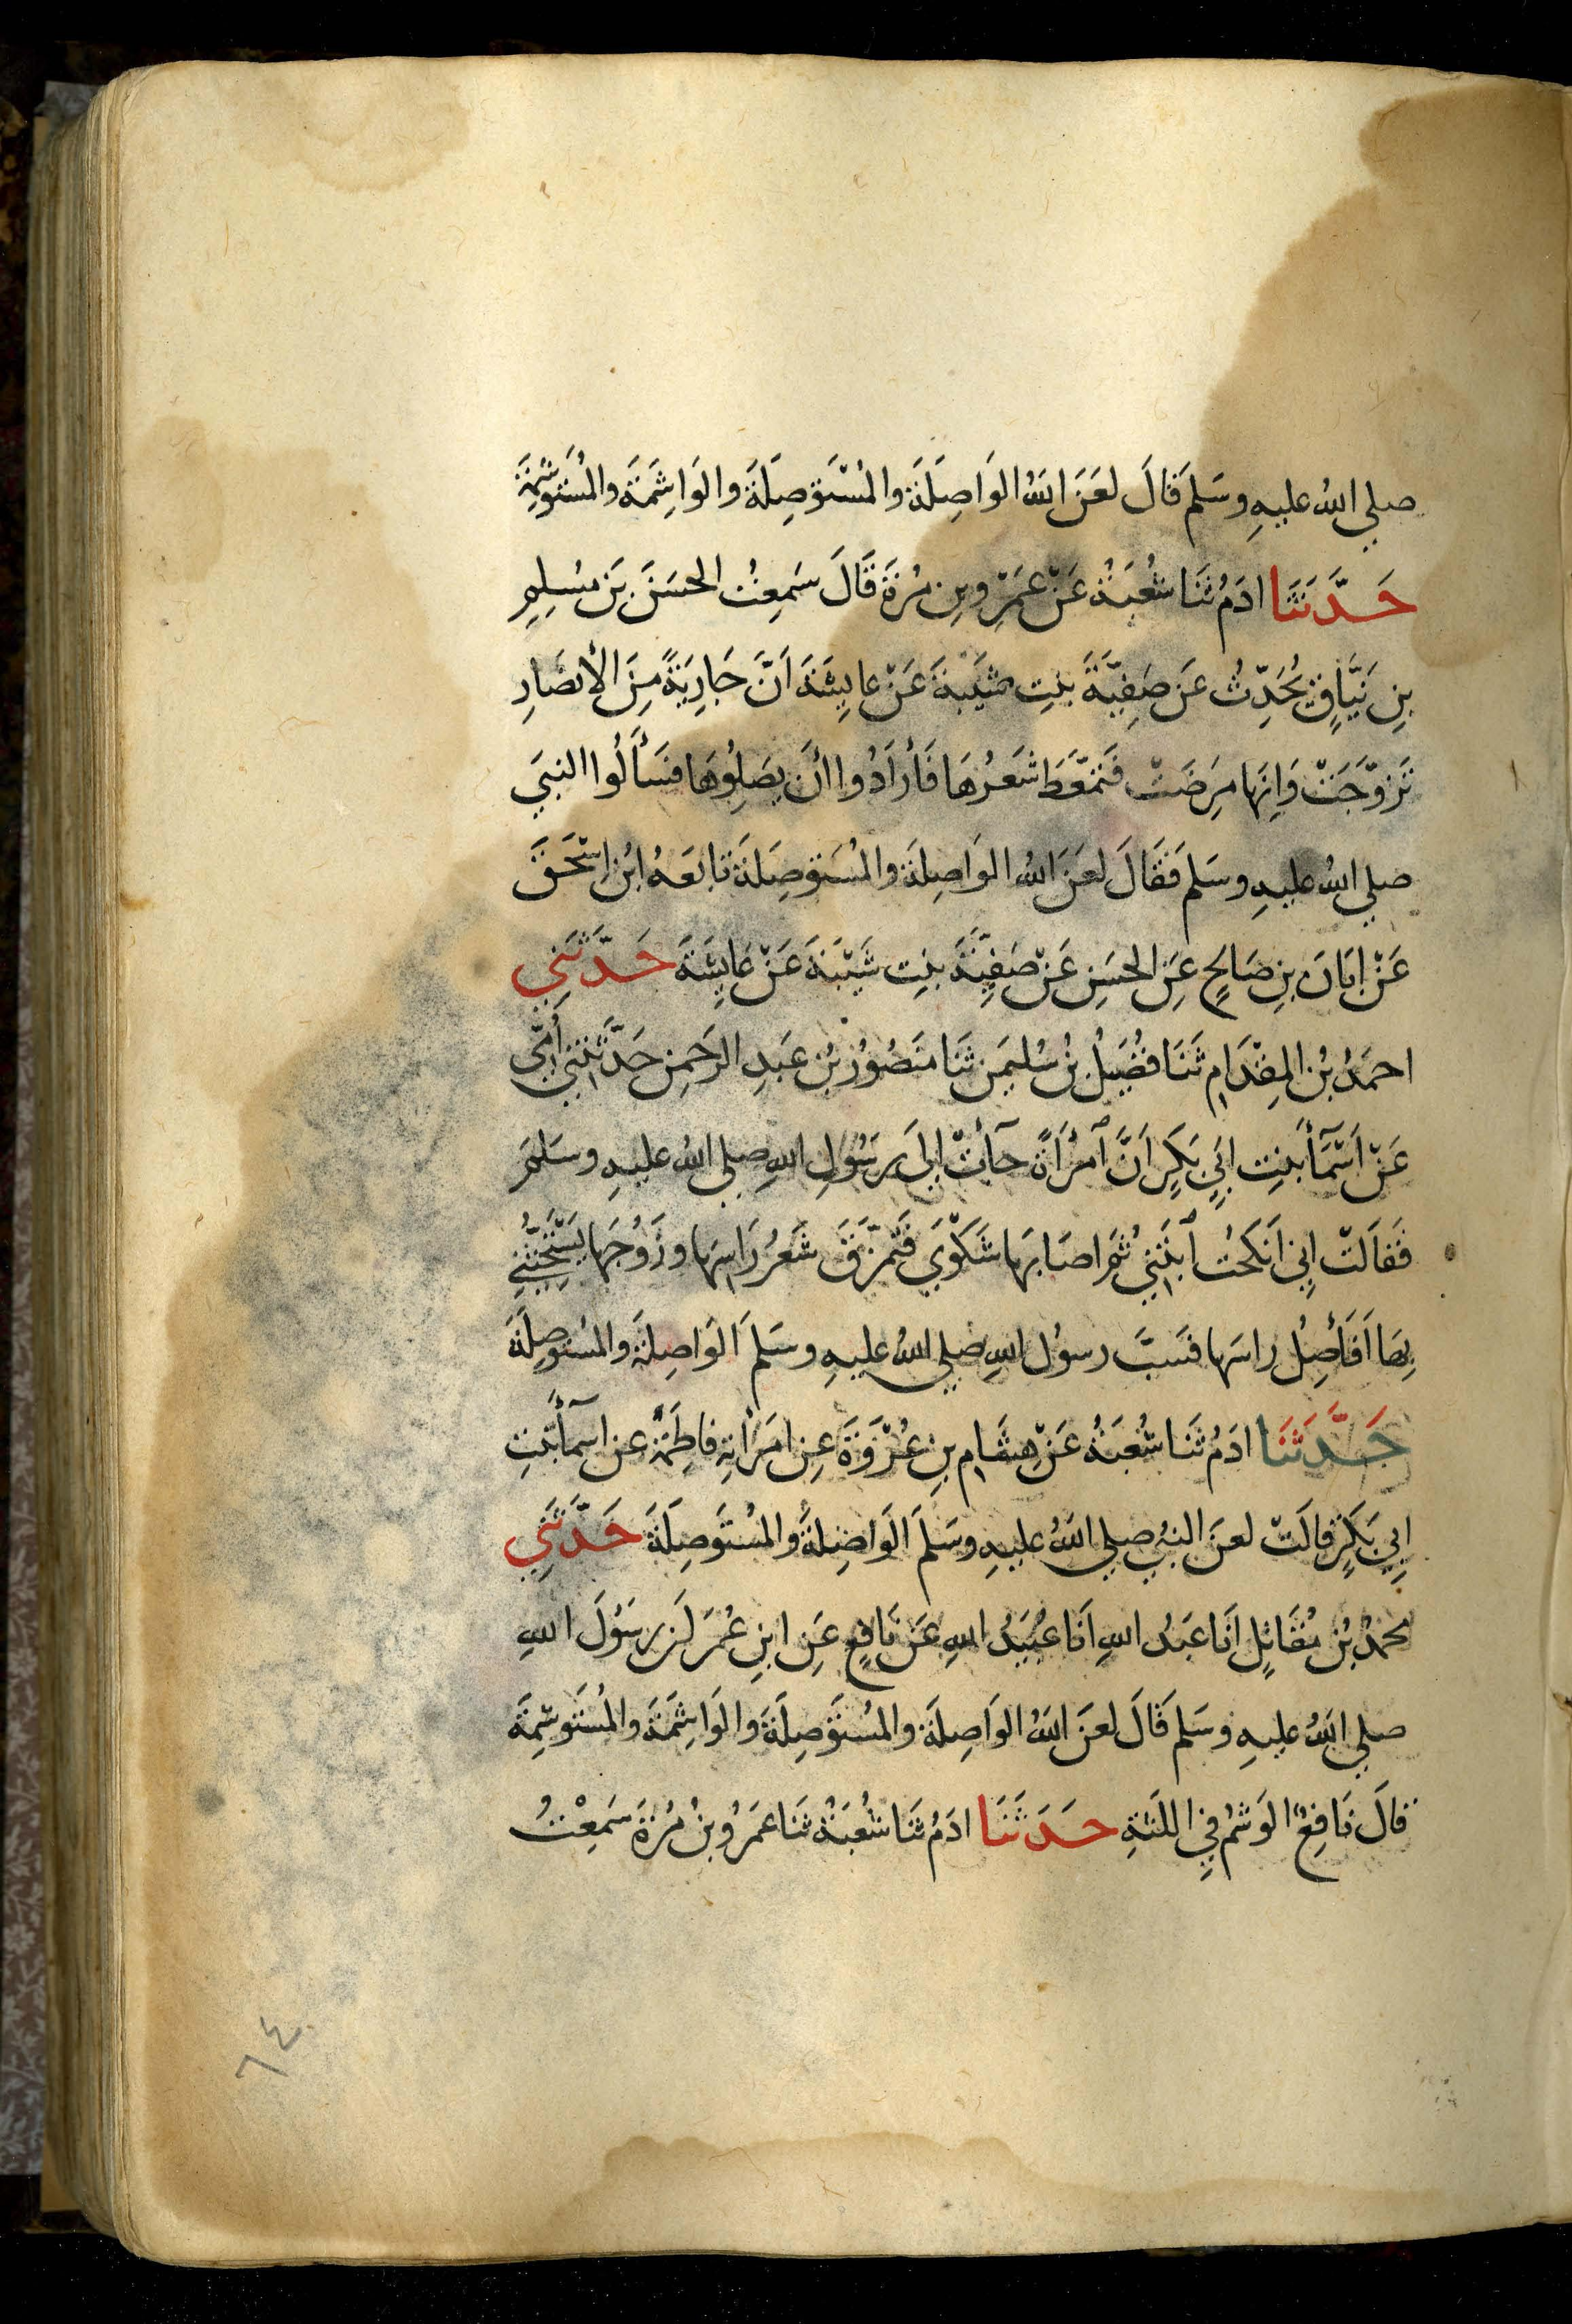 صلي الله عليهِ وسَلمَ قَالَ لعَنَ اللهُ الوَاصِلَةَ والمُسْتَوصِلَةَ والوَاشِمَةَ والمُستوشِمَةَ
حَدَّثَنَا ادَمُ ثَنَا شُعْبَةُ عَنْ عَمْرِو بنِ مُرَةَ قَالَ سَمِعتُ الحسَنَ بنَ مسُلِمِ
بنِ نَيَّاقٍ يُحَدِّثُ عَن صَفِيَّةَ بنتِ شَيْبَةَ عَنْ عايِشَةَ اَنَّ جَارِيَةً مِنَ الأَنصَارِ
تَزوّجَتْ وَانهَا مَرِضَتْ فَتَمَّعَطَ شَعَرُهَا فَأرَادُوا أن يَصِلُوهَا فسَأَلُوا النبيَ
صلي اللهُ عليهِ وسَلمَ فَقَالَ لعَنَ اللهُ الوَاصِلَةَ والمُستَوصِلَةَ تابَعَهُ ابْنُ اِسْحَقَ
عَنْ اَبَانَ بنِ صَالِحٍ عَنِ الحسَنِ عَنْ صَفِيَّةَ بنتِ شَيْبَةَ عَنْ عَايِشَةَ حَدَّثَنِي
احمَدُ بْنُ المِقْدَامِ ثَنَا فُضَيلُ بنُ سُليمَن ثَنَا مَنصُورُ بْنُ عَبدِ الرَحمنِ حَدَّثَتْنِي أُمِّي
عَنْ اَسْمَآءَ بنتِ ابِي بَكرٍ اَنَّ اَمْرَأةً جَآءَتْ اِلَي رَسُولِ اللهِ صلي اللهُ عليهِ وسَلمَ
فَقالَتْ اِنِي اَنكَحْتُ ابْنَتِي ثُمَ اصَابَها شَكوَي فَتَمزَّقَ شَعَرُ رَاسِهَا وزَوْجُهَا يَسْتَحِثُّنِي
بِهَا اَفَأَصِلُ رَاسَهَا فسَبَّ رسوُل اللهِ صلي اللهُ عليهِ وسَلمَ الوَاصِلَةَ والمُستوصِلَةَ
حَدَّثَنَا ادَمُ ثَنَا شُعْبَةُ عَنْ هِشَامِ بنِ عُرْوَةَ عنِ امرَأَتِهِ فاطِمَةَ عن اسمآءَ بنتِ
ابِي بَكرٍ قالَتْ لعنَ النبيُ صلي اللهُ عليهِ وسَلمَ الوَاصِلَةَ والمُستَوصِلَةَ حَدَّثَنِي
محمدُ بْنُ مُقَاتِلٍ اَنَا عَبدُ اللهِ اَنَا عُبَيدُ اللهِ عَن نَافِعٍ عَنِ ابنِ عُمَرَ اَن رسَوُلَ اللهِ
صلي اللهُ عليهِ وسَلمَ قَالَ لعنَ اللهُ الوَاصِلَةَ والمُستَوصِلَةَ والوَاشِمَةَ والمُستَوشِمَةَ
قالَ نَافِعٌ الوَشمُ فِي اللثَةِ حَدَثَنَا ادَمُ ثَنَا شُعْبَةُ ثَنَا عَمرُو بنُ مُرَةَ سَمِعْتُ
٦٤